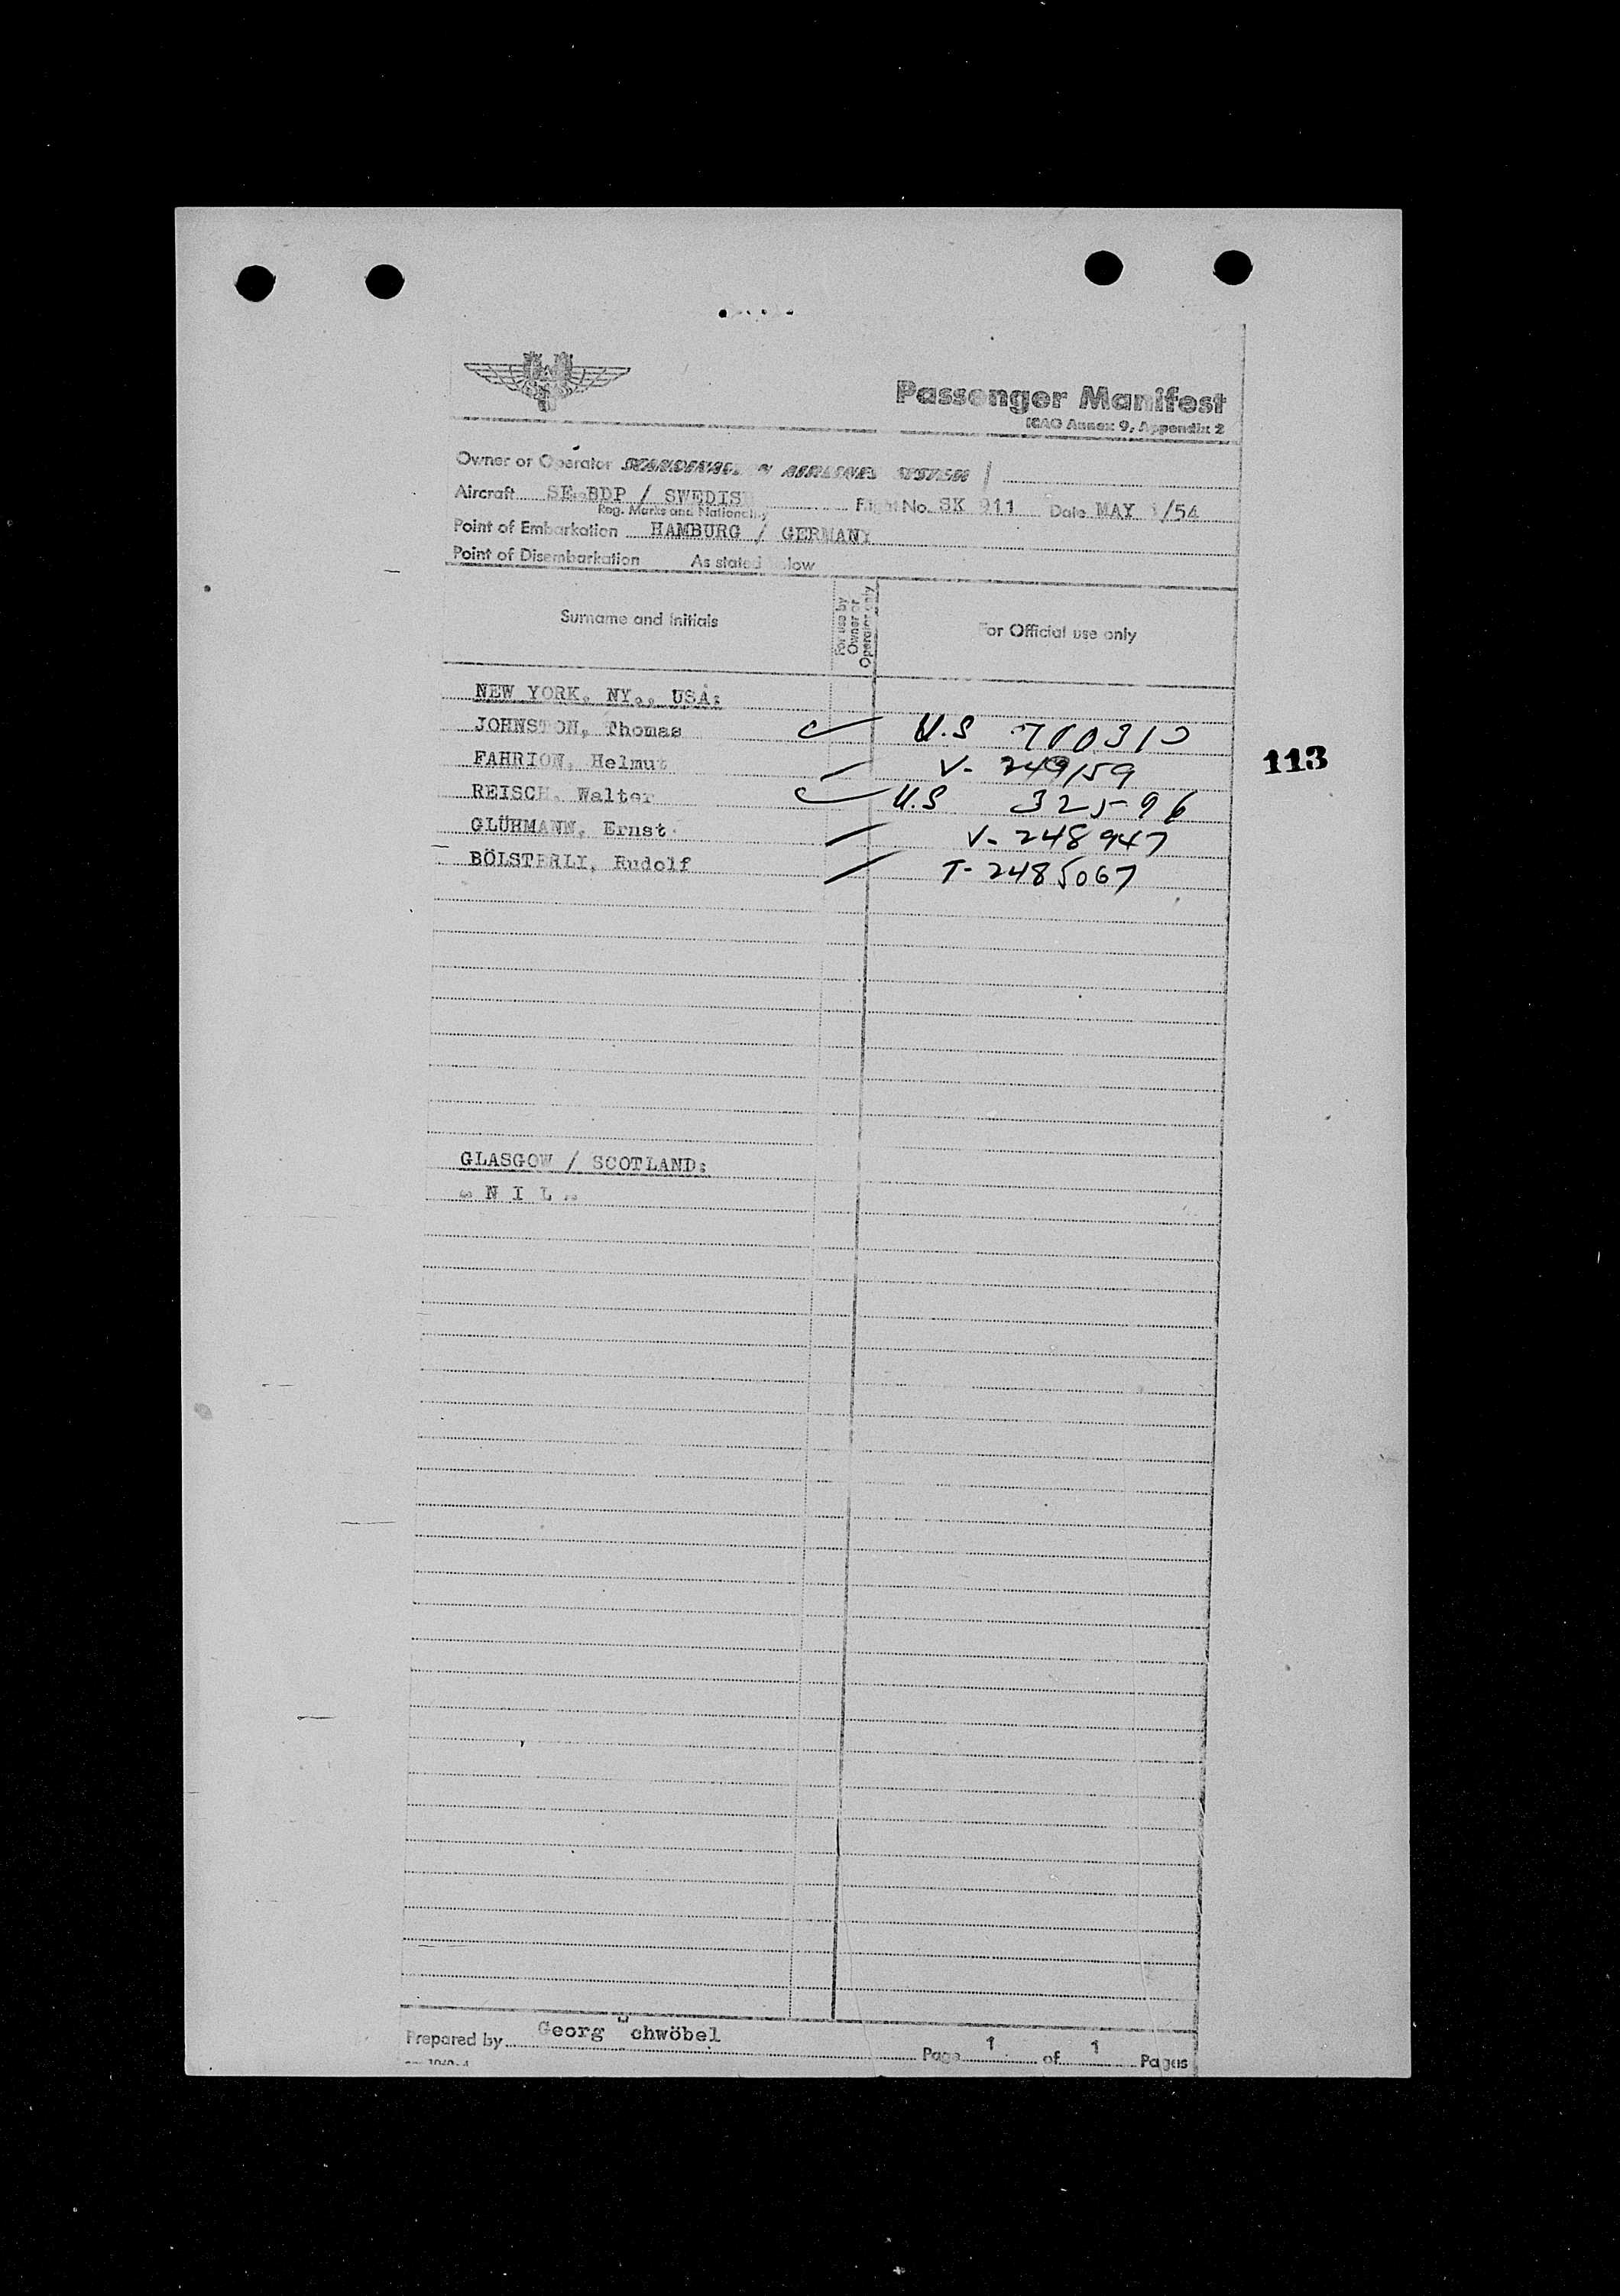 Passenger Manifest
ICAO Annex 9, Appendix 2
Owner or Operator AIRLINES SYSTEM
Aircraft SE-BDP / SWEDISH Flight No. SK 911 Date MAY /54
Reg. Marks and Nationality
Point of Embarkation HAMBURG / GERMANY
Point of Disembarkation As stated below
Surname and Initials For use by Owner or Operator only For Official use only
NEW YORK, NY., USA:
JOHNSTON, Thomas U.S
FAHRION, Helmut V- 249159
113
REISCH, Walter U.S 32596
GLÜHMANN, Ernst V- 248947
BÖLSTERLI, Rudolf T- 2485067
GLASGOW / SCOTLAND:
- N I L -
Prepared by Georg Schwöbel Page 1 of 1 Pages